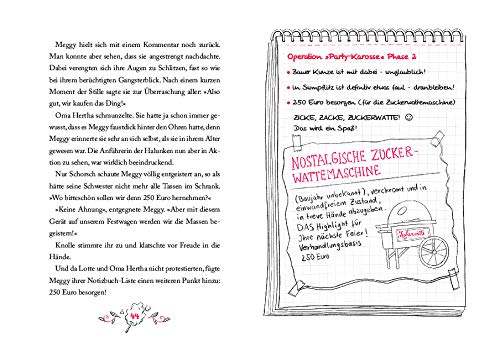 Meggy hielt sich mit einem Kommentar noch zurück.
Man konnte aber sehen, dass sie angestrengt nachdachte.
Dabei verengten sich ihre Augen zu Schlitzen, fast so wie
bei ihrem berüchtigten Gangsterblick. Nach einem kurzen
Moment der Stille sagte sie zur Überraschung aller: »Also
gut, wir kaufen das Ding!«
Oma Hertha schmunzelte. Sie hatte ja schon immer ge-
wusst, dass es Meggy faustdick hinter den Ohren hatte, denn
Meggy erinnerte sie sehr an sich selbst, als sie in ihrem Alter
gewesen war. Die Anführerin der Halunken nun aber in Ak-
tion zu sehen, war wirklich beeindruckend.
Nur Schorsch schaute Meggy völlig entgeistert an, so als
hätte seine Schwester nicht mehr alle Tassen im Schrank.
»Wo bitteschön sollen wir denn 250 Euro hernehmen?«
»Keine Ahnung«, entgegnete Meggy. »Aber mit diesem
Gerät auf unserem Festwagen werden wir die Massen be-
geistern!«
Knolle stimmte ihr zu und klatschte vor Freude in die
Hände.
Und da Lotte und Oma Hertha nicht protestierten, fügte
Meggy ihrer Notizbuch-Liste einen weiteren Punkt hinzu:
250 Euro besorgen!
44
Operation »Party-Karosse« Phase 2
• Bauer Kunze ist mit dabei - unglaublich!
• in Sumpflitz ist definitiv etwas faul - dranbleiben!
• 250 Euro besorgen (für die Zuckerwattemaschine)
ZICKE, ZACKE, ZUCKERWATTE! ☺
Das wird ein Spaß!
NOSTALGISCHE ZUCKER-
WATTEMASCHINE
(Baujahr unbekannt), verchromt und in
einwandfreiem Zustand,
in treue Hände abzugeben.
DAS Highlight für
Ihre nächste Feier!
Verhandlungsbasis
250 Euro
Zuckerwatte